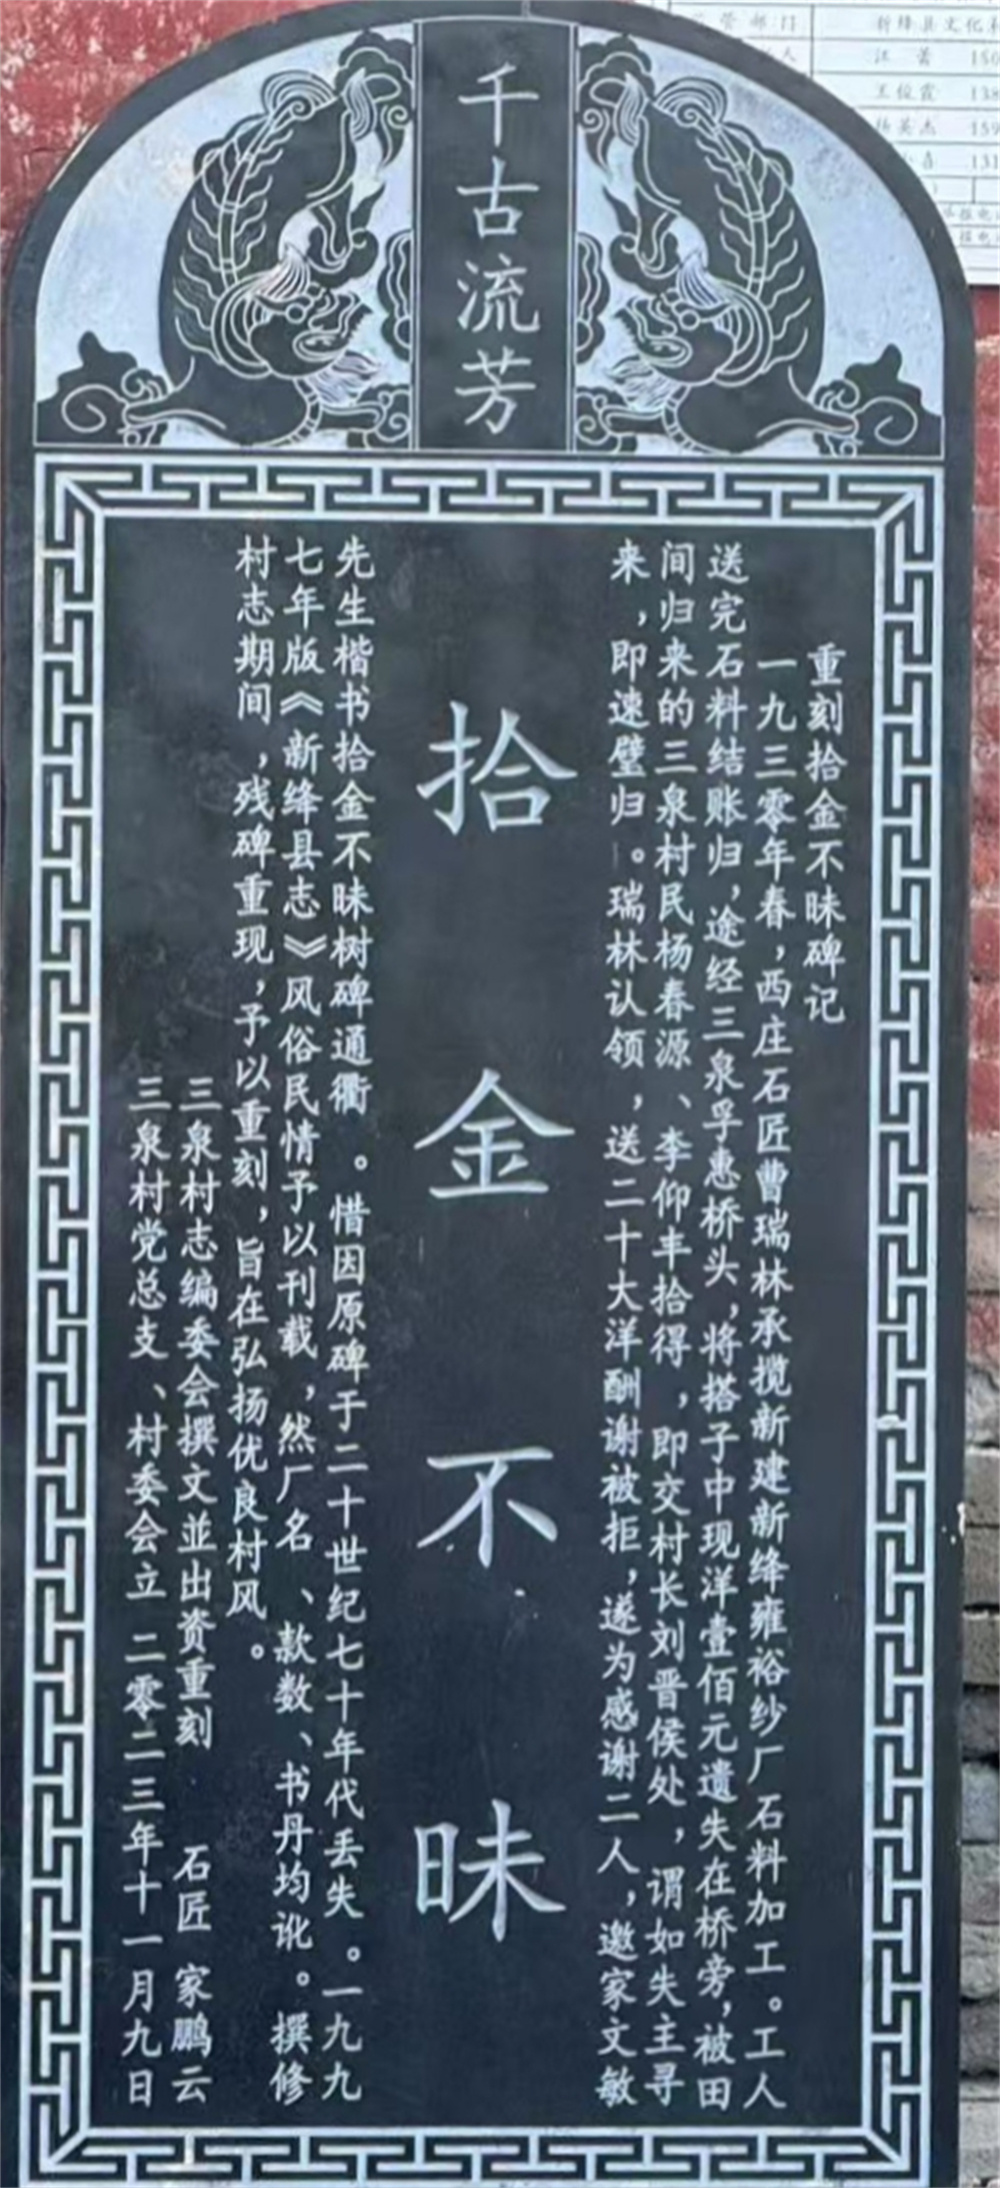 千古流芳
重刻拾金不昧碑记
一九三零年春，西庄石匠曹瑞林承揽新建新绛雍裕纱厂石料加工。工人
送完石料结账归，途经三泉孚惠桥头，将搭子中现洋壹佰元遗失在桥旁，被田
间归来的三泉村民杨春源、李仰丰拾得，即交村长刘晋侯处，谓如失主寻
来，即速璧归。瑞林认领，送二十大洋酬谢被拒，遂为感谢二人，邀家文敏
拾金不昧
先生楷书拾金不昧树碑通衢。惜因原碑于二十世纪七十年代丢失。一九九
七年版《新绛县志》风俗民情予以刊载，然厂名、款数、书丹均讹。撰修
村志期间，残碑重现，予以重刻，旨在弘扬优良村风。
三泉村志编委会撰文並出资重刻 石匠 家鹏云
三泉村党总支、村委会立 二零二三年十一月九日
营部门
新绛县文化
人
江
150
王俊霞
138
杨英杰
159
喜
131
报电
报电